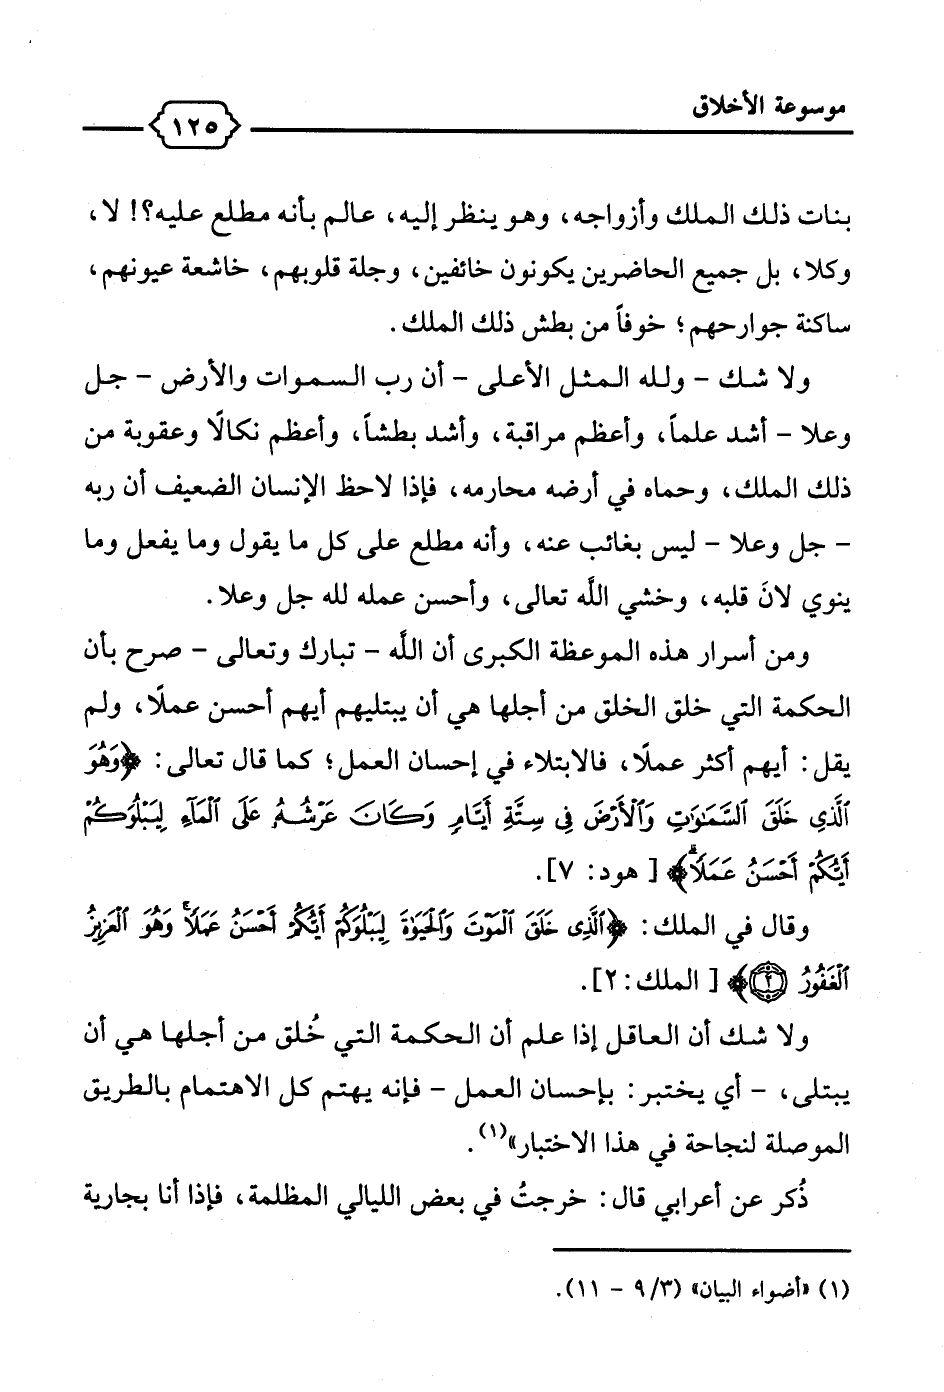 موسوعة الأخلاق
١٢٥
بنات ذلك الملك وأزواجه، وهو ينظر إليه، عالم بأنه مطلع عليه؟! لا،
وكلا، بل جميع الحاضرين يكونون خائفين، وجلة قلوبهم، خاشعة عيونهم،
ساكنة جوارحهم؛ خوفاً من بطش ذلك الملك.
ولا شك - ولله المثل الأعلى - أن رب السموات والأرض - جل
وعلا - أشد علماً، وأعظم مراقبة، وأشد بطشاً، وأعظم نكالًا وعقوبة من
ذلك الملك، وحماه في أرضه محارمه، فإذا لاحظ الإنسان الضعيف أن ربه
- جل وعلا - ليس بغائب عنه، وأنه مطلع على كل ما يقول وما يفعل وما
ينوي لانَ قلبه، وخشي اللَّه تعالى، وأحسن عمله لله جل وعلا.
ومن أسرار هذه الموعظة الكبرى أن اللَّه - تبارك وتعالى - صرح بأن
الحكمة التي خلق الخلق من أجلها هي أن يبتليهم أيهم أحسن عملًا، ولم
يقل: أيهم أكثر عملًا، فالابتلاء في إحسان العمل؛ كما قال تعالى: ﴿وَهُوَ
ٱلَّذِى خَلَقَ ٱلسَّمَٰوَٰتِ وَٱلْأَرْضَ فِى سِتَّةِ أَيَّامٍ وَكَانَ عَرْشُهُۥ عَلَى ٱلْمَآءِ لِيَبْلُوَكُمْ
أَيُّكُمْ أَحْسَنُ عَمَلًاۗ﴾ [هود: ٧].
وقال في الملك: ﴿ٱلَّذِى خَلَقَ ٱلْمَوْتَ وَٱلْحَيَوٰةَ لِيَبْلُوَكُمْ أَيُّكُمْ أَحْسَنُ عَمَلًاۚ وَهُوَ ٱلْعَزِيزُ
ٱلْغَفُورُ ٢﴾ [الملك: ٢].
ولا شك أن العاقل إذا علم أن الحكمة التي خُلق من أجلها هي أن
يبتلى، - أي يختبر: بإحسان العمل - فإنه يهتم كل الاهتمام بالطريق
الموصلة لنجاحة في هذا الاختبار»(١).
ذُكر عن أعرابي قال: خرجتُ في بعض الليالي المظلمة، فإذا أنا بجارية
(١) «أضواء البيان» (٩/٣ - ١١).